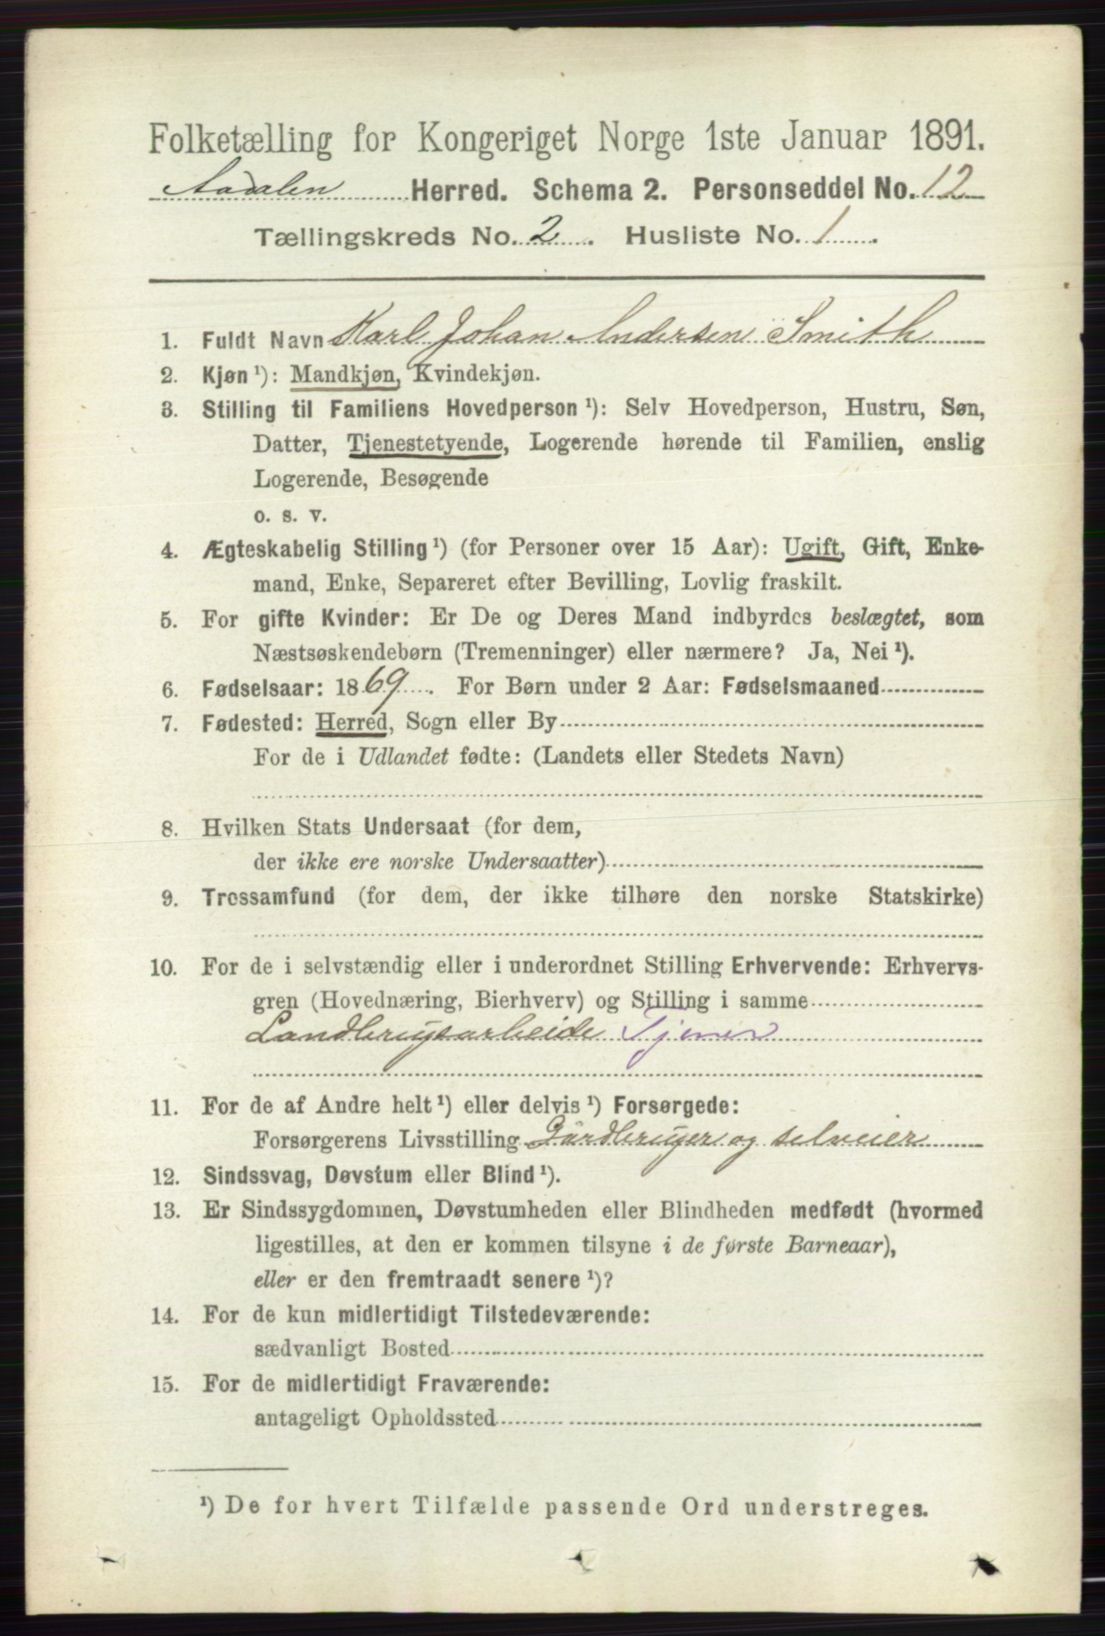 Folketælling for Kongeriget Norge 1ste Januar 1891.
Aadalen Herred. Schema 2. Personseddel No. 12
Tællingskreds No. 2. Husliste No. 1.
1. Fuldt Navn Karl Johan Andersen Smith
2. Kjøn¹): Mandkjøn, Kvindekjøn.
3. Stilling til Familiens Hovedperson¹): Selv Hovedperson, Hustru, Søn,
Datter, Tjenestetyende, Logerende hørende til Familien, enslig
Logerende, Besøgende
o. s. v.
4. Ægteskabelig Stilling¹) (for Personer over 15 Aar): Ugift, Gift, Enke-
mand, Enke, Separeret efter Bevilling, Lovlig fraskilt.
5. For gifte Kvinder: Er De og Deres Mand indbyrdes beslægtet, som
Næstsøskendebørn (Tremenninger) eller nærmere? Ja, Nei¹).
6. Fødselsaar: 1869. For Børn under 2 Aar: Fødselsmaaned
7. Fødested: Herred, Sogn eller By
For de i Udlandet fødte: (Landets eller Stedets Navn)
8. Hvilken Stats Undersaat (for dem,
der ikke ere norske Undersaatter)
9. Trossamfund (for dem, der ikke tilhøre den norske Statskirke)
10. For de i selvstændig eller i underordnet Stilling Erhvervende: Erhvervs-
gren (Hovednæring, Bierhverv) og Stilling i samme
Landbrugsarbeide Tjener
11. For de af Andre helt¹) eller delvis¹) Forsørgede:
Forsørgerens Livsstilling Gardbruger og selveier
12. Sindssvag, Døvstum eller Blind¹).
13. Er Sindssygdommen, Døvstumheden eller Blindheden medfødt (hvormed
ligestilles, at den er kommen tilsyne i de første Barneaar),
eller er den fremtraadt senere¹)?
14. For de kun midlertidigt Tilstedeværende:
sædvanligt Bosted
15. For de midlertidigt Fraværende:
antageligt Opholdssted
¹) De for hvert Tilfælde passende Ord understreges.